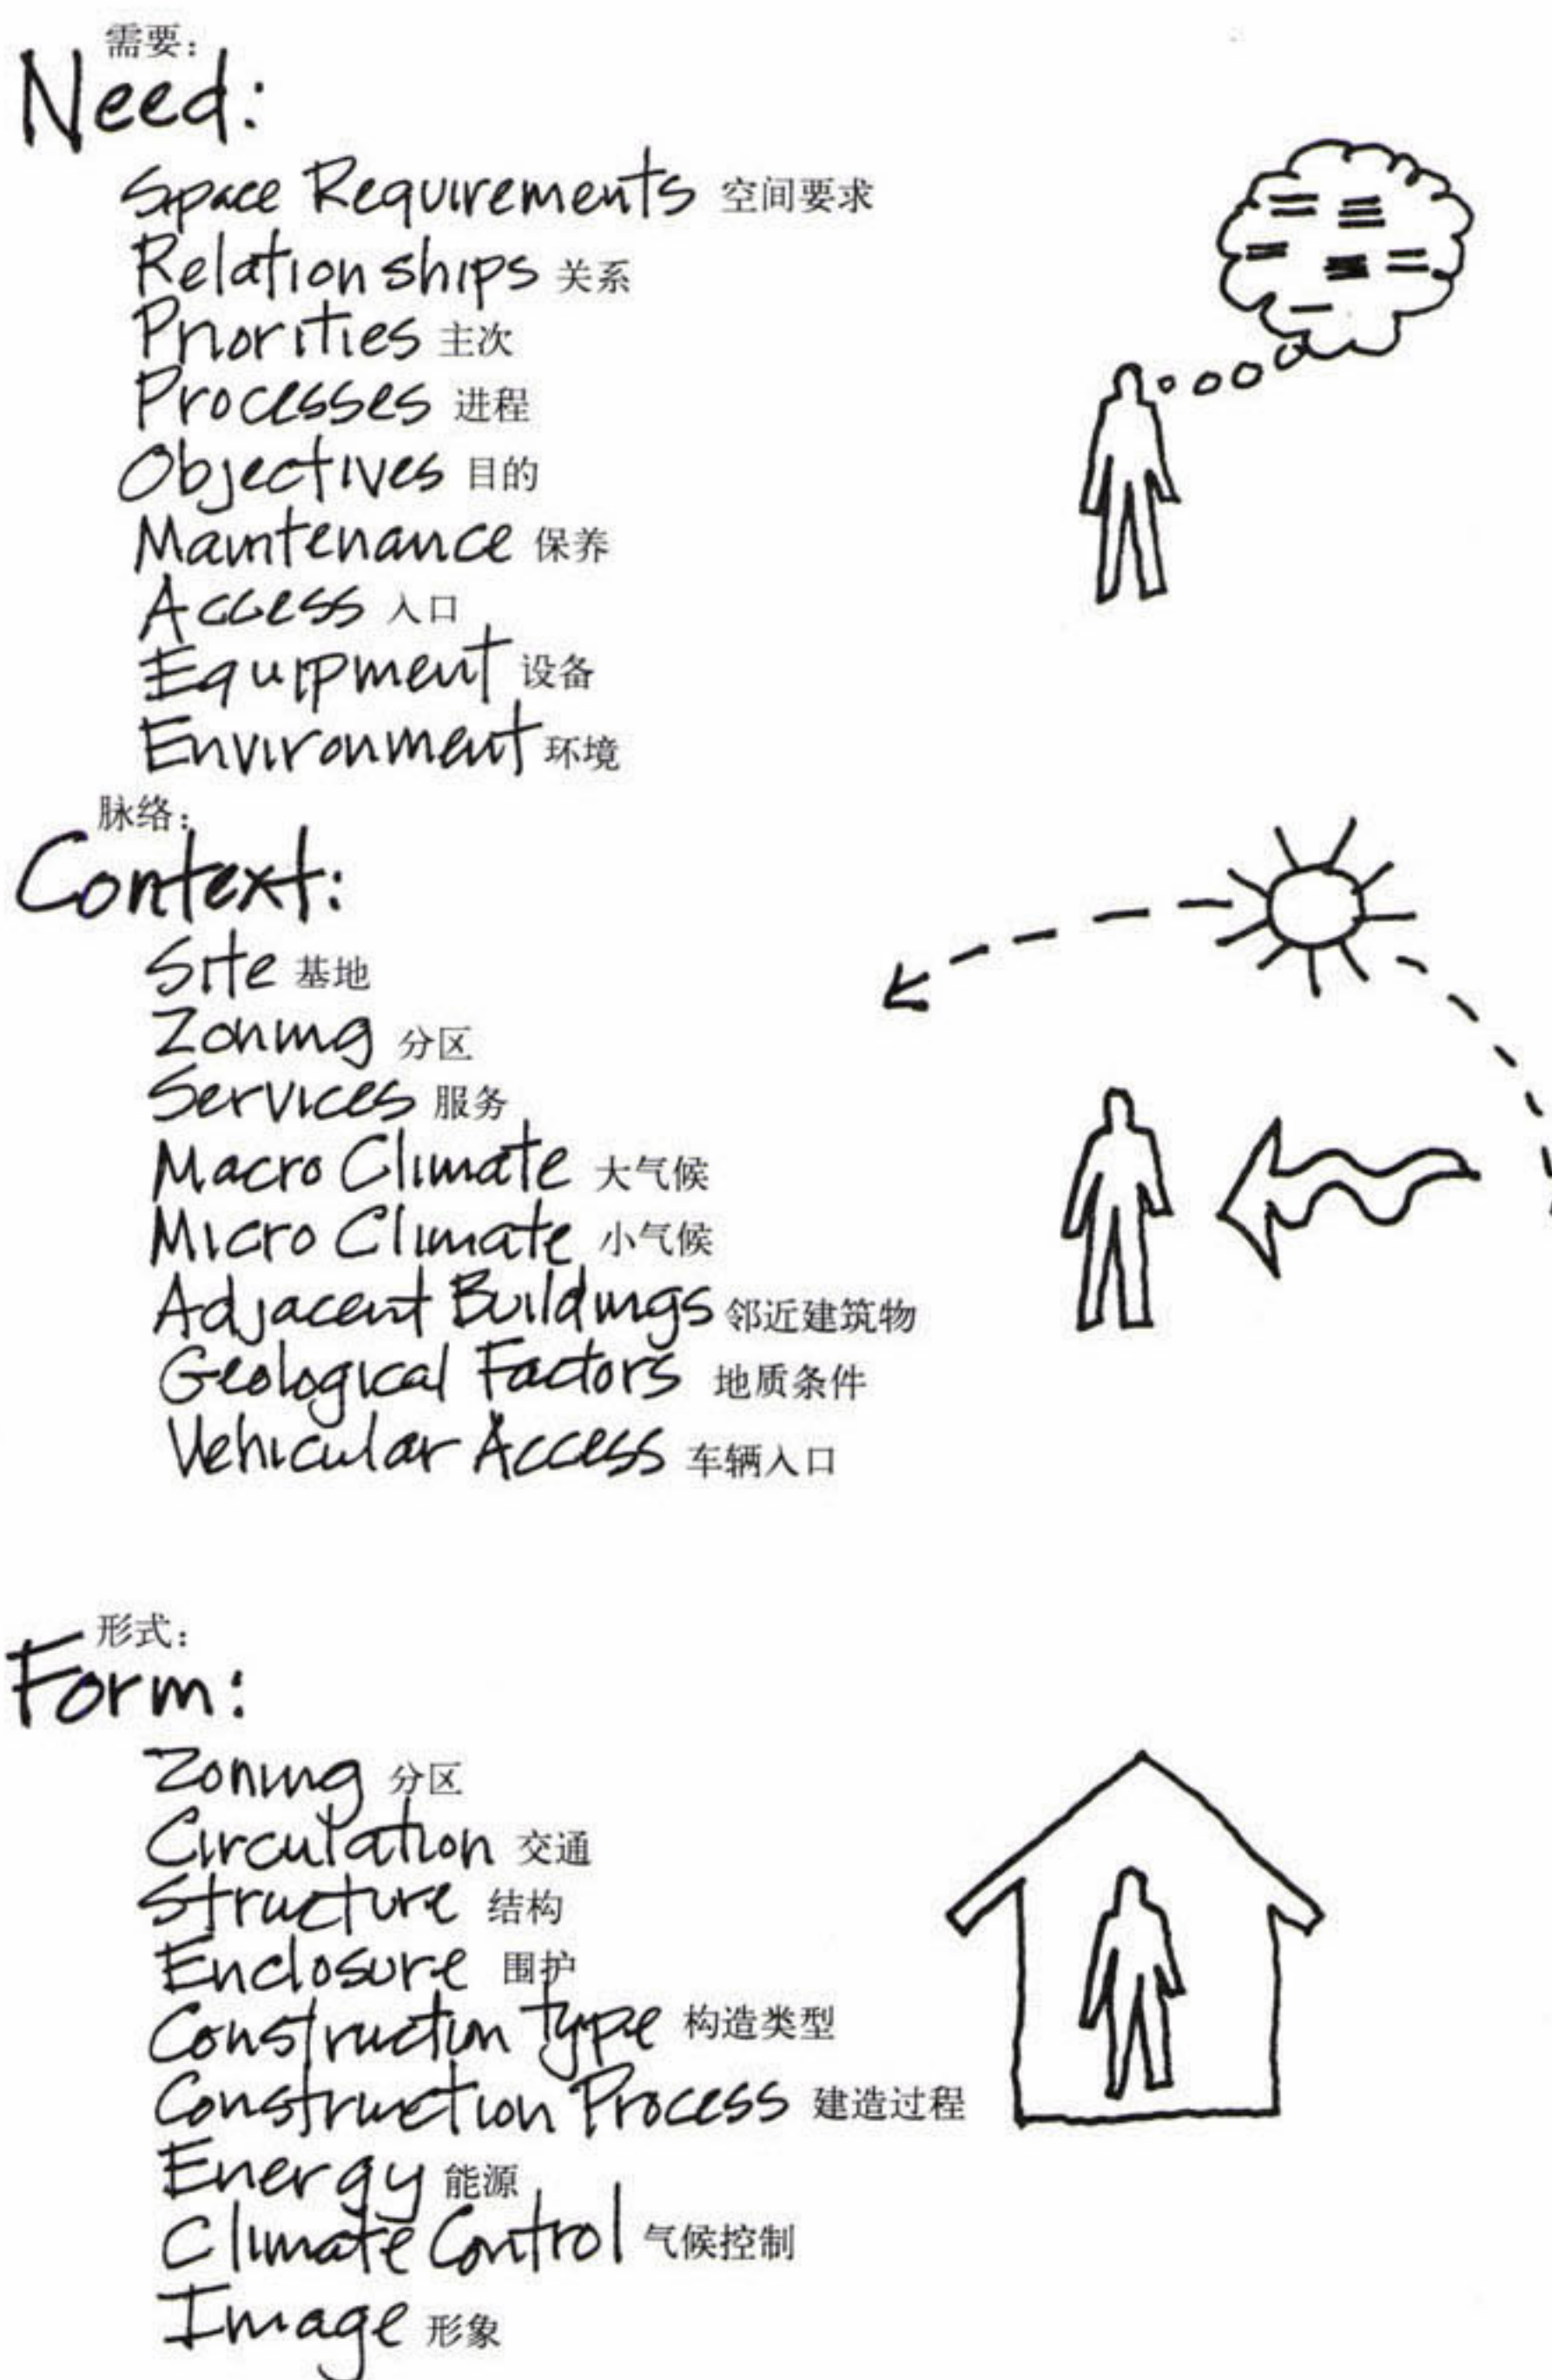 需要：
Need:
Space Requirements 空间要求
Relationships 关系
Priorities 主次
Processes 进程
Objectives 目的
Maintenance 保养
Access 入口
Equipment 设备
Environment 环境
脉络：
Context:
Site 基地
Zoning 分区
Services 服务
Macro Climate 大气候
Micro Climate 小气候
Adjacent Buildings 邻近建筑物
Geological Factors 地质条件
Vehicular Access 车辆入口
形式：
Form:
Zoning 分区
Circulation 交通
Structure 结构
Enclosure 围护
Construction type 构造类型
Construction Process 建造过程
Energy 能源
Climate Control 气候控制
Image 形象